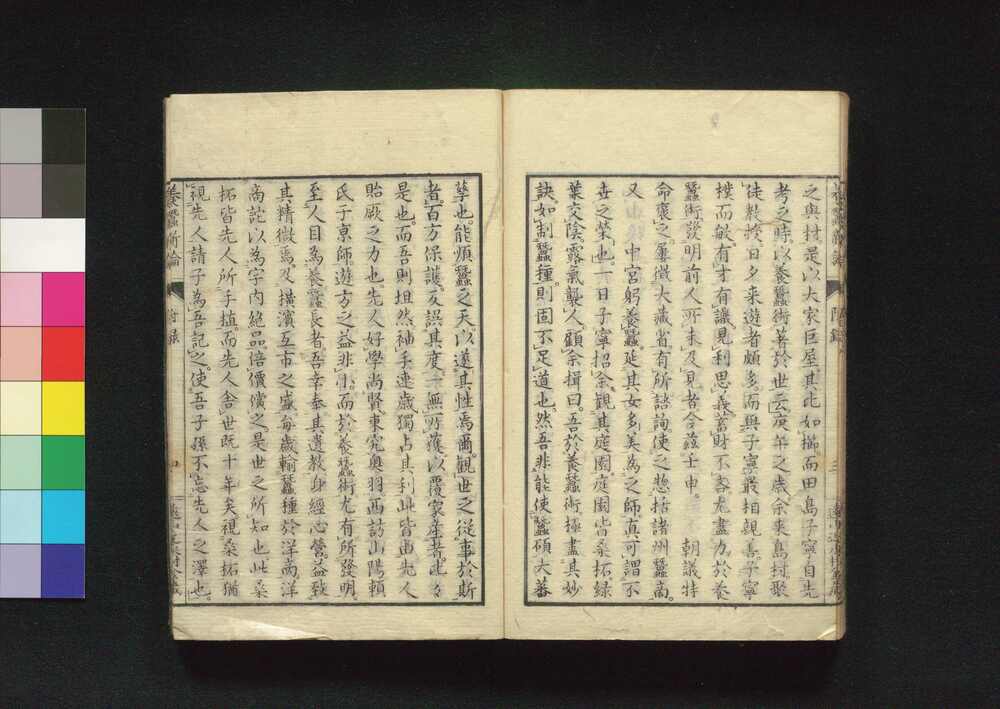 之與材是以大家巨屋其比如櫛而田島子寧自先
考之時以養蠶術著於世云庚午之歳余來島村聚
徒教授日夕來遊者頗多而與子寧最相親善子寧
樸而敏有才有識見利思義蓄財不吝尤盡力於養
蠶術發明前人所未及見者合茲壬申 朝議特
命褒之屢徴大藏省有所諮詢使之惣括諸州蠶商
又 中宮躬養蠶延其女多美為之師真可謂不
世之榮也一日子寧招余觀其庭園庭園皆桑柘緑
葉交陰露氣襲人顧余揖曰吾於養蠶術極盡其妙
訣如制蠶種則固不足道也然吾非能使蠶碩大蕃
孳也能順蠶之天以遂其性焉爾觀世之從事於斯
者百方保護又誤其度一無所獲以覆家產者比々
是也而吾則坦然袖手連歳獨占其利此皆由先人
貽厥之力也先人好學尚賢東究奥羽西訪山陽頼
氏于京師遊方之益非小而於養蠶術尤有所發明
至人目為養蠶長者吾幸奉其遺教身經心營益致
其精微焉及横濱互市之盛毎歳輸蠶種於洋商洋
商詫以為宇内絶品倍價償之是世之所知也此桑
柘皆先人所手植而先人舎世既十年矣視桑柘猶
視先人請子為吾記之使吾子孫不忘先人之澤也
養蠶新論
附録
三
四